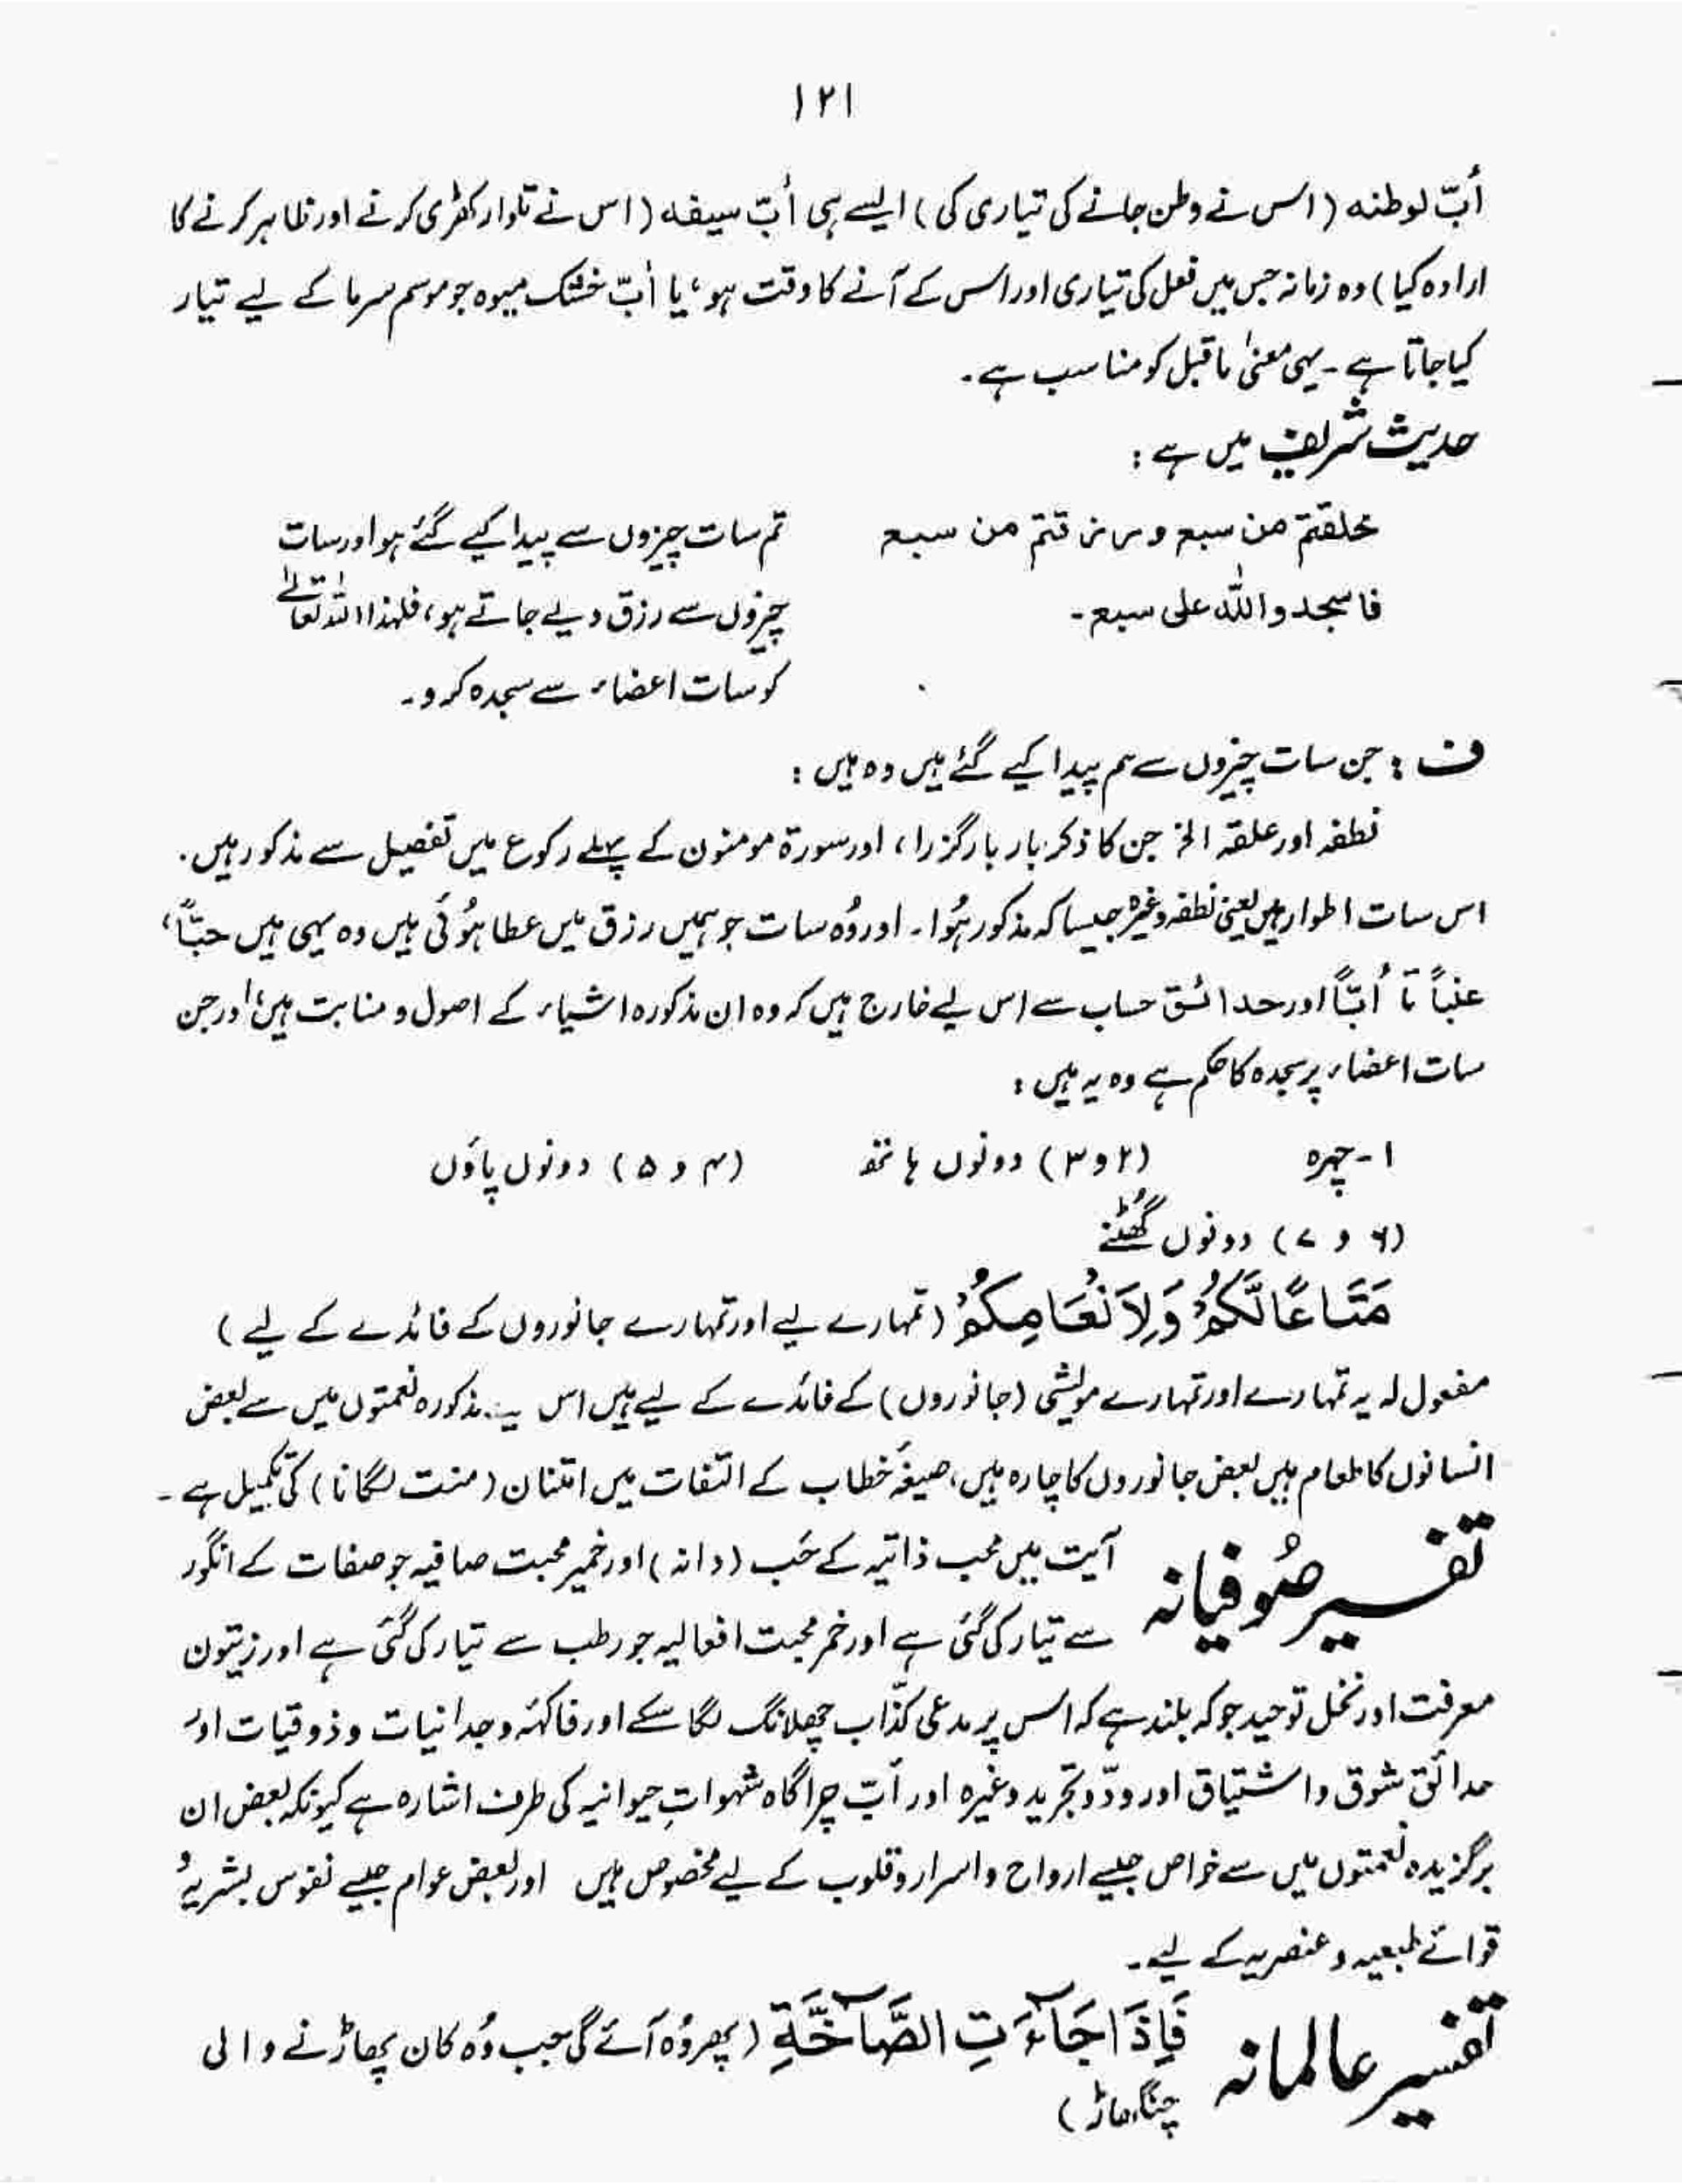 ۱۲۱
أبّ لوطنه (اس نے وطن جانے کی تیاری کی) ایسے ہی أبّ سیفه (اس نے تلوار کھڑی کرنے اور ظاہر کرنے کا
ارادہ کیا) وہ زمانہ جس میں فعل کی تیاری اور اس کے آنے کا وقت ہو، یا أبّ خشک میوہ جو موسم سرما کے لیے تیار
کیا جاتا ہے۔ یہی معنیٰ ماقبل کو مناسب ہے۔
حدیث شریف میں ہے:
خلقتم من سبع ورزقتم من سبع
فاسجدوا لله علی سبع۔
تم سات چیزوں سے پیدا کیے گئے ہو اور سات
چیزوں سے رزق دیے جاتے ہو، فلہذا اللہ تعالےٰ
کو سات اعضاء سے سجدہ کرو۔
ف: جن سات چیزوں سے ہم پیدا کیے گئے ہیں وہ ہیں:
نطفہ اور علقہ الخ جن کا ذکر بار بار گزرا، اور سورۃ مومنون کے پہلے رکوع میں تفصیل سے مذکور ہیں۔
اس سات اطوار ہیں یعنی نطفہ وغیرہ جیسا کہ مذکور ہُوا۔ اور وُہ سات جو ہمیں رزق میں عطا ہُوئی ہیں وہ یہی ہیں حبّاً،
عنباً تا أبّاً اور حدائق حساب سے اس لیے خارج ہیں کہ وہ ان مذکورہ اشیاء کے اصول و منابت ہیں، اور جن
سات اعضاء پر سجدہ کا حکم ہے وہ یہ ہیں:
۱۔ چہرہ (۲ و ۳) دونوں ہاتھ (۴ و ۵) دونوں پاؤں
(۶ و ۷) دونوں گھُٹنے
مَتَاعًا لَّكُمْ وَلِأَنْعَامِكُمْ (تمہارے لیے اور تمہارے جانوروں کے فائدے کے لیے)
مفعول لہ یہ تمہارے اور تمہارے مویشی (جانوروں) کے فائدے کے لیے ہیں اس مذکورہ نعمتوں میں سے بعض
انسانوں کا طعام ہیں بعض جانوروں کا چارہ ہیں، صیغۂ خطاب کے التفات میں امتنان (منت لگانا) کی تکمیل ہے۔
تفسیر صُوفیانہ آیت میں محب ذاتیہ کے حَب (دانہ) اور خمیر محبت صافیہ جو صفات کے انگور
سے تیار کی گئی ہے اور خمر محبت افعالیہ جو رطب سے تیار کی گئی ہے اور زیتون
معرفت اور نخل توحید جو کہ بلند ہے کہ اس پر مدعی کذّاب چھلانگ لگا سکے اور فاکہہ وجدانیات و ذوقیات اور
حدائق شوق و اشتیاق اور ودّ و تجرید وغیرہ اور أبّ چراگاہ شہواتِ حیوانیہ کی طرف اشارہ ہے کیونکہ بعض ان
برگزیدہ نعمتوں میں سے خواص جیسے ارواح و اسرار و قلوب کے لیے مخصوص ہیں اور بعض عوام جیسے نفوس بشریہ و
قوائے طبعیہ و عنصریہ کے لیے۔
تفسیر عالمانہ فَإِذَا جَآءَتِ الصَّآخَّةِ (پھر وُہ آئے گی جب وُہ کان پھاڑنے والی
چنگھاڑ)